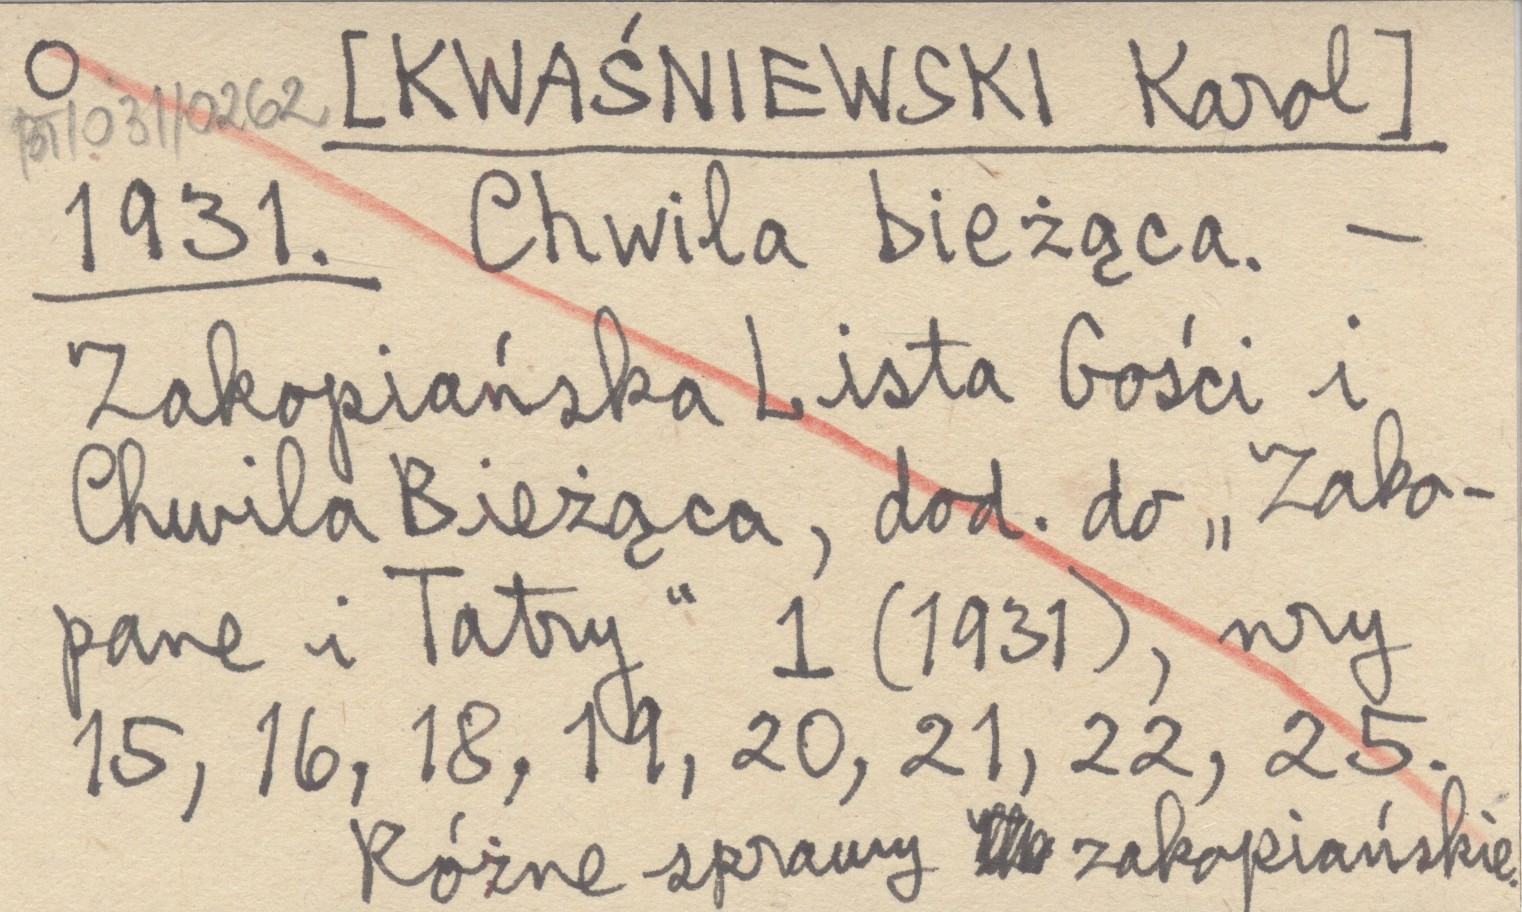 O
[KWAŚNIEWSKI Karol]
BT/031/0262
1931. Chwila bieżąca. —
Zakopiańska Lista Gości i
Chwila Bieżąca, dod. do „Zako-
pane i Tatry“ 1 (1931), nry
15, 16, 18, 19, 20, 21, 22, 25.
Różne sprawy zakopiańskie.